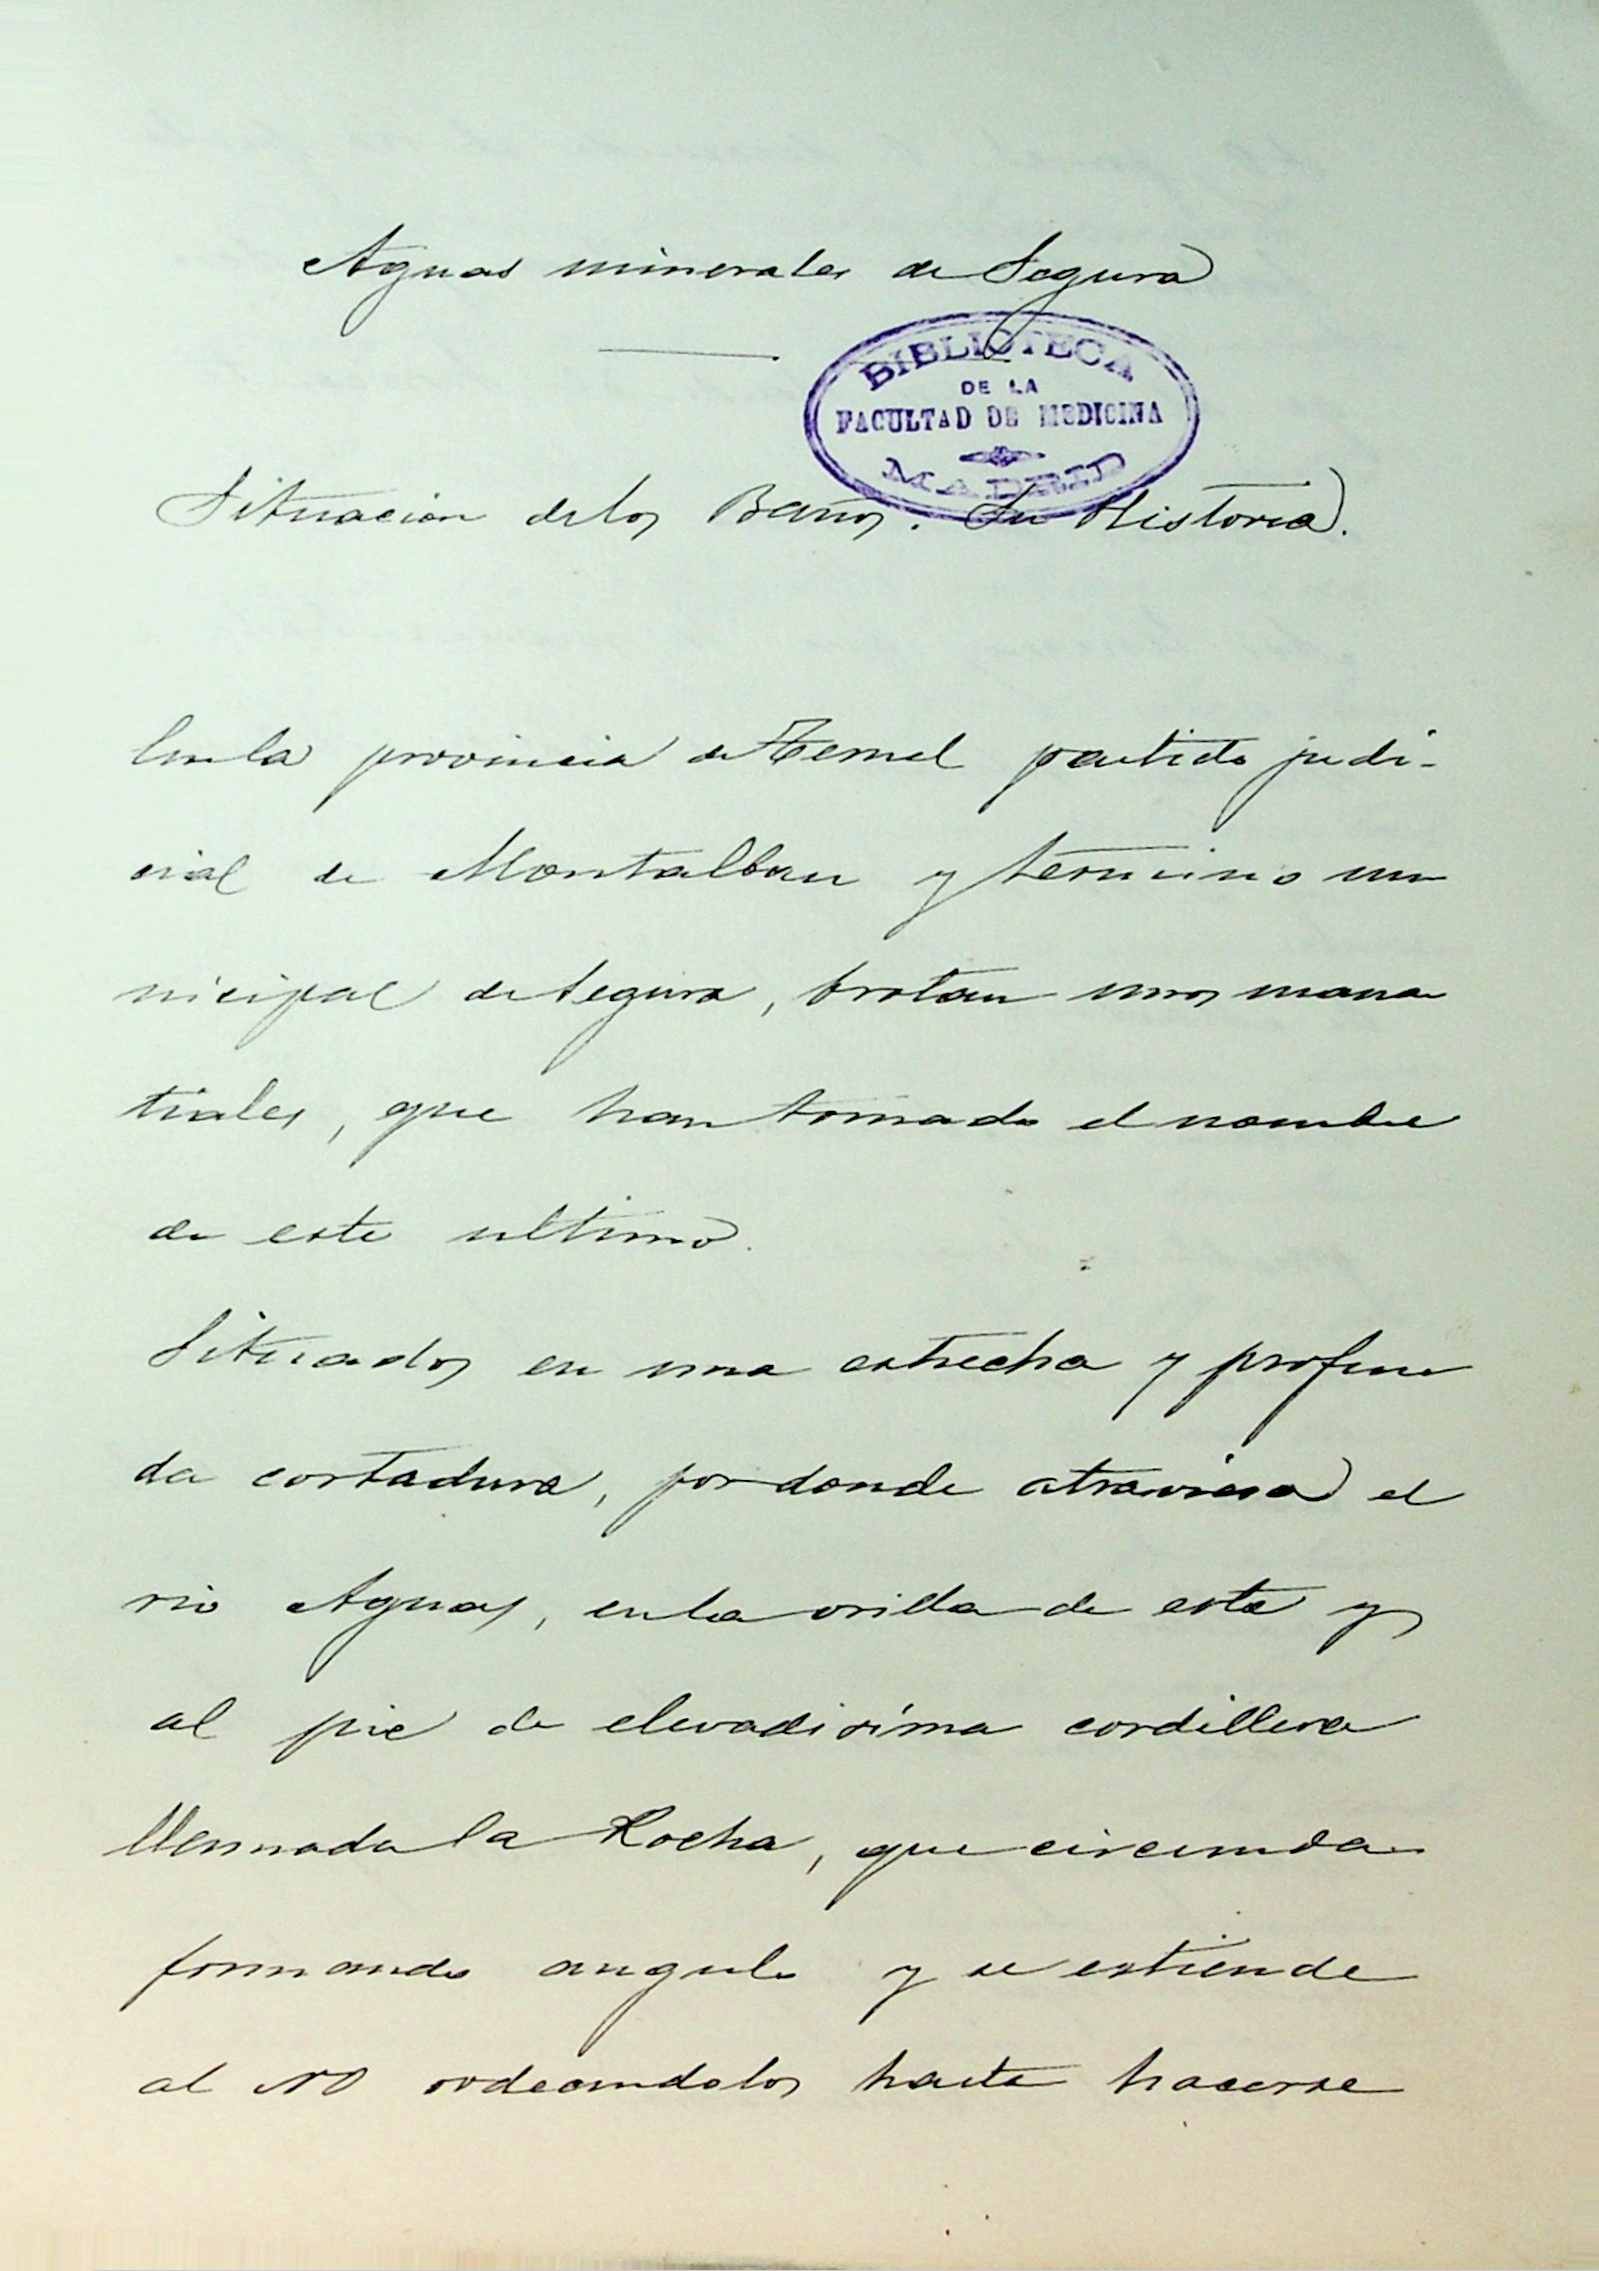 Aguas minerales de Segura
BIBLIOTECA
DE LA
FACULTAD DE MEDICINA
MADRID
Situacion de los Baños. Su Historia.
En la provincia de Teruel partido judi-
cial de Montalban y termino mu
nicipal de Segura, brotan unos mana
tiales, que han tomado el nombre
de este ultimo.
Situados en una estrecha y profun
da cortadura, por donde atraviesa el
rio Aguas, en la orilla de este y
al pie de elevadisima cordillera
llamada la Rocha, que circunda
formando angulo y se estiende
al NO rodeandolos hasta hacerse